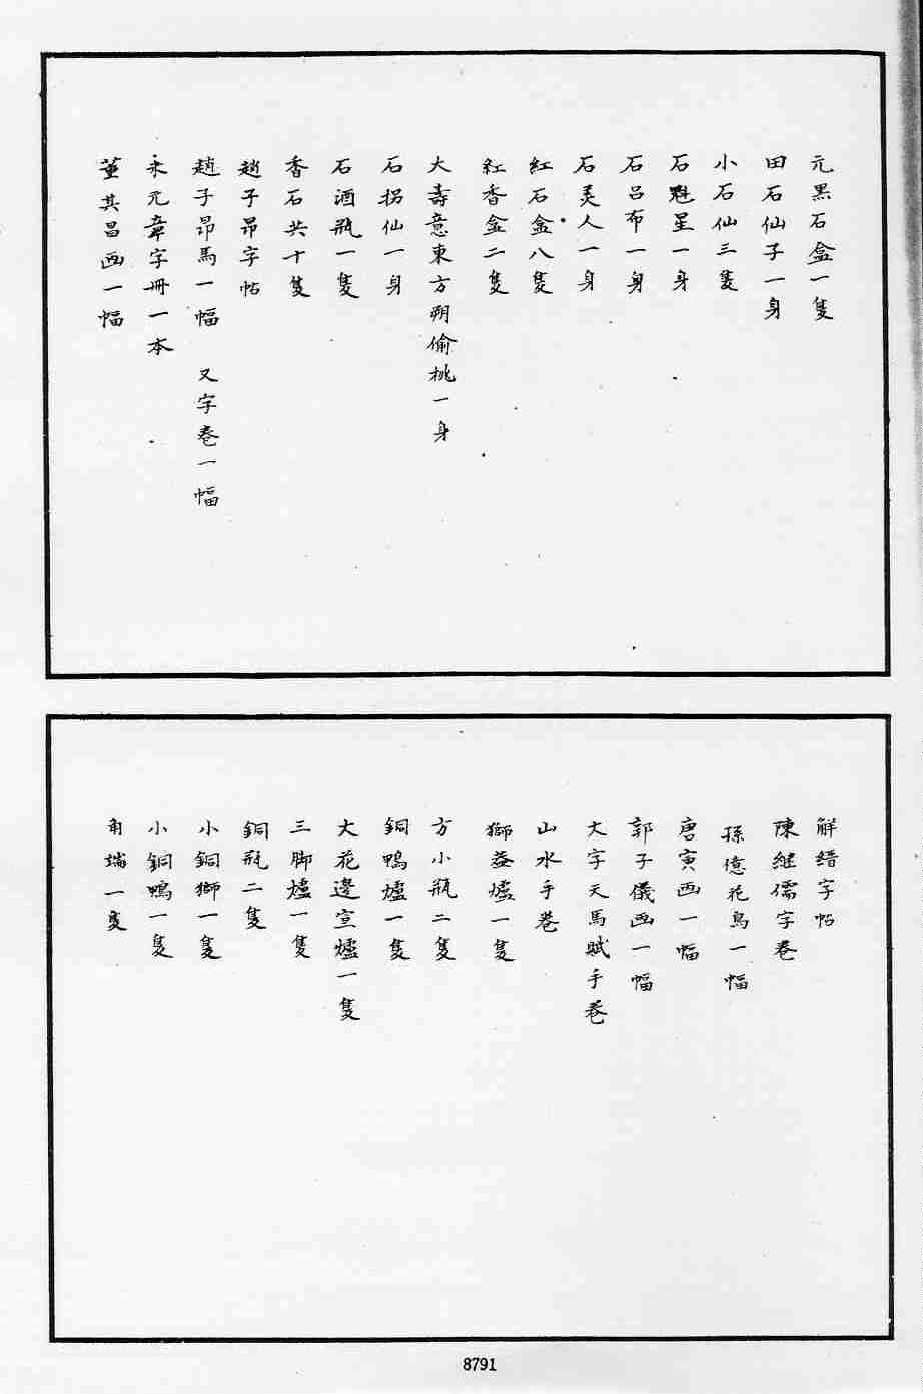 元黑石盒一隻
田石仙子一身
小石仙三隻
石魁星一身
石呂布一身
石美人一身
紅石盒八隻
紅香盒二隻
大壽意東方朔偷桃一身
石拐仙一身
石酒瓶一隻
香石共十隻
趙子昂字帖
趙子昂馬一幅 又字卷一幅
米元章字冊一本
董其昌画一幅
解縉字帖
陳继儒字卷
孫億花鳥一幅
唐寅画一幅
郭子儀画一幅
大字天馬賦手卷
山水手卷
獅蓋爐一隻
方小瓶二隻
銅鴨爐一隻
大花邊宣爐一隻
三脚爐一隻
銅瓶二隻
小銅獅一隻
小銅鴨一隻
甪端一隻
8791